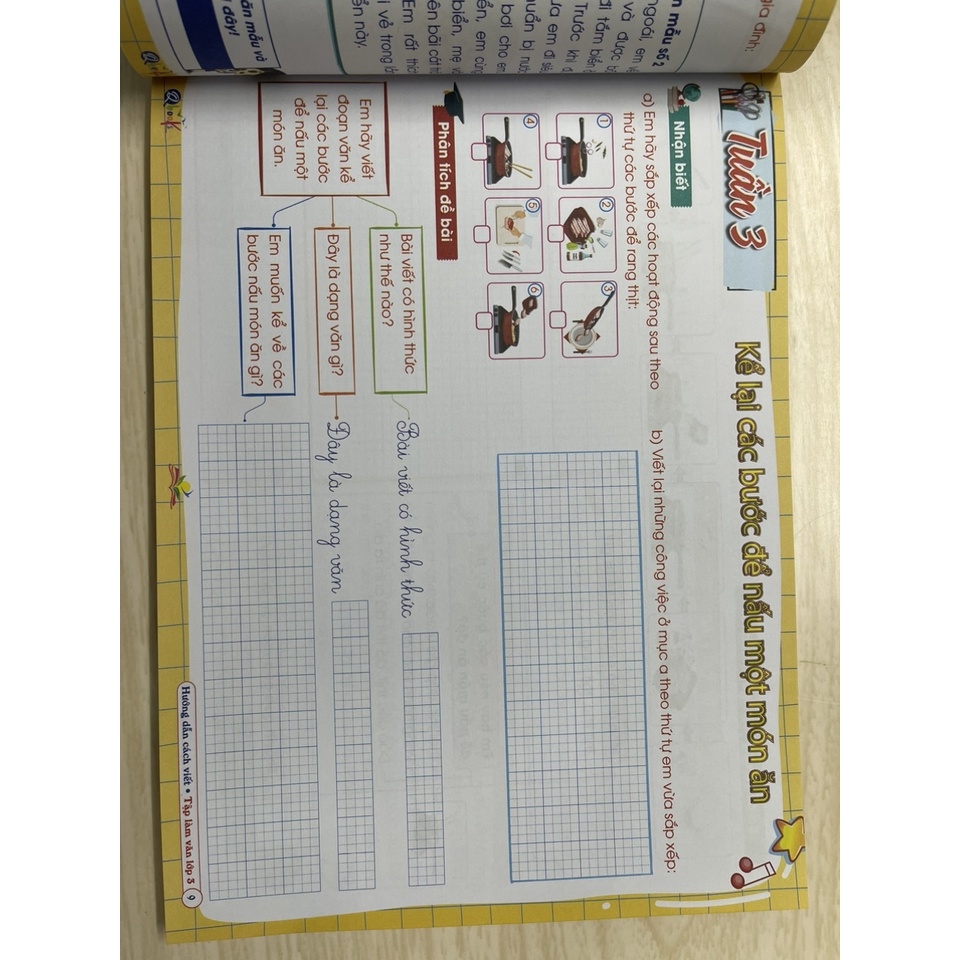 gia đình:
mẫu số 2
ngoài, em
và được
đi tắm biển
Trước khi
em đi
bị
bơi cho em
em cùng
biển, mẹ
Em rất
về trong
này.
mẫu và
đây!
Tuần 3
Kể lại các bước để nấu một món ăn
Nhận biết
a) Em hãy sắp xếp các hoạt động sau theo
thứ tự các bước để rang thịt:
1
2
3
4
5
6
b) Viết lại những công việc ở mục a theo thứ tự em vừa sắp xếp:
Phân tích đề bài
Em hãy viết
đoạn văn kể
lại các bước
để nấu một
món ăn.
Bài viết có hình thức
như thế nào?
Bài viết có hình thức
Đây là dạng văn gì?
Đây là dạng văn
Em muốn kể về các
bước nấu món ăn gì?
Hướng dẫn cách viết • Tập làm văn lớp 3
9